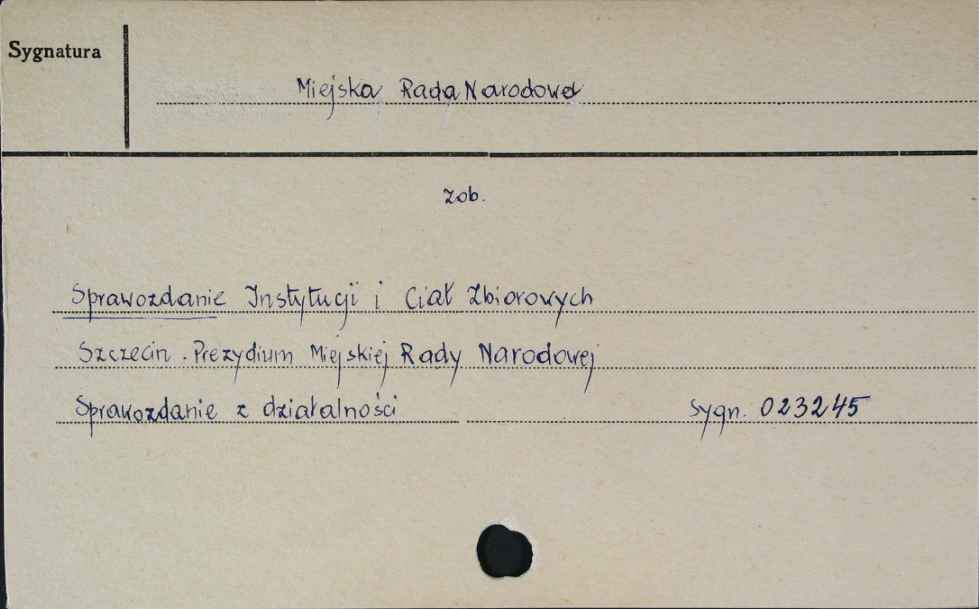 Sygnatura
Miejska Rada Narodowa
zob.
Sprawozdanie Instytucji i Ciał Zbiorowych
Szczecin. Prezydium Miejskiej Rady Narodowej
Sprawozdanie z działalności sygn. 023245